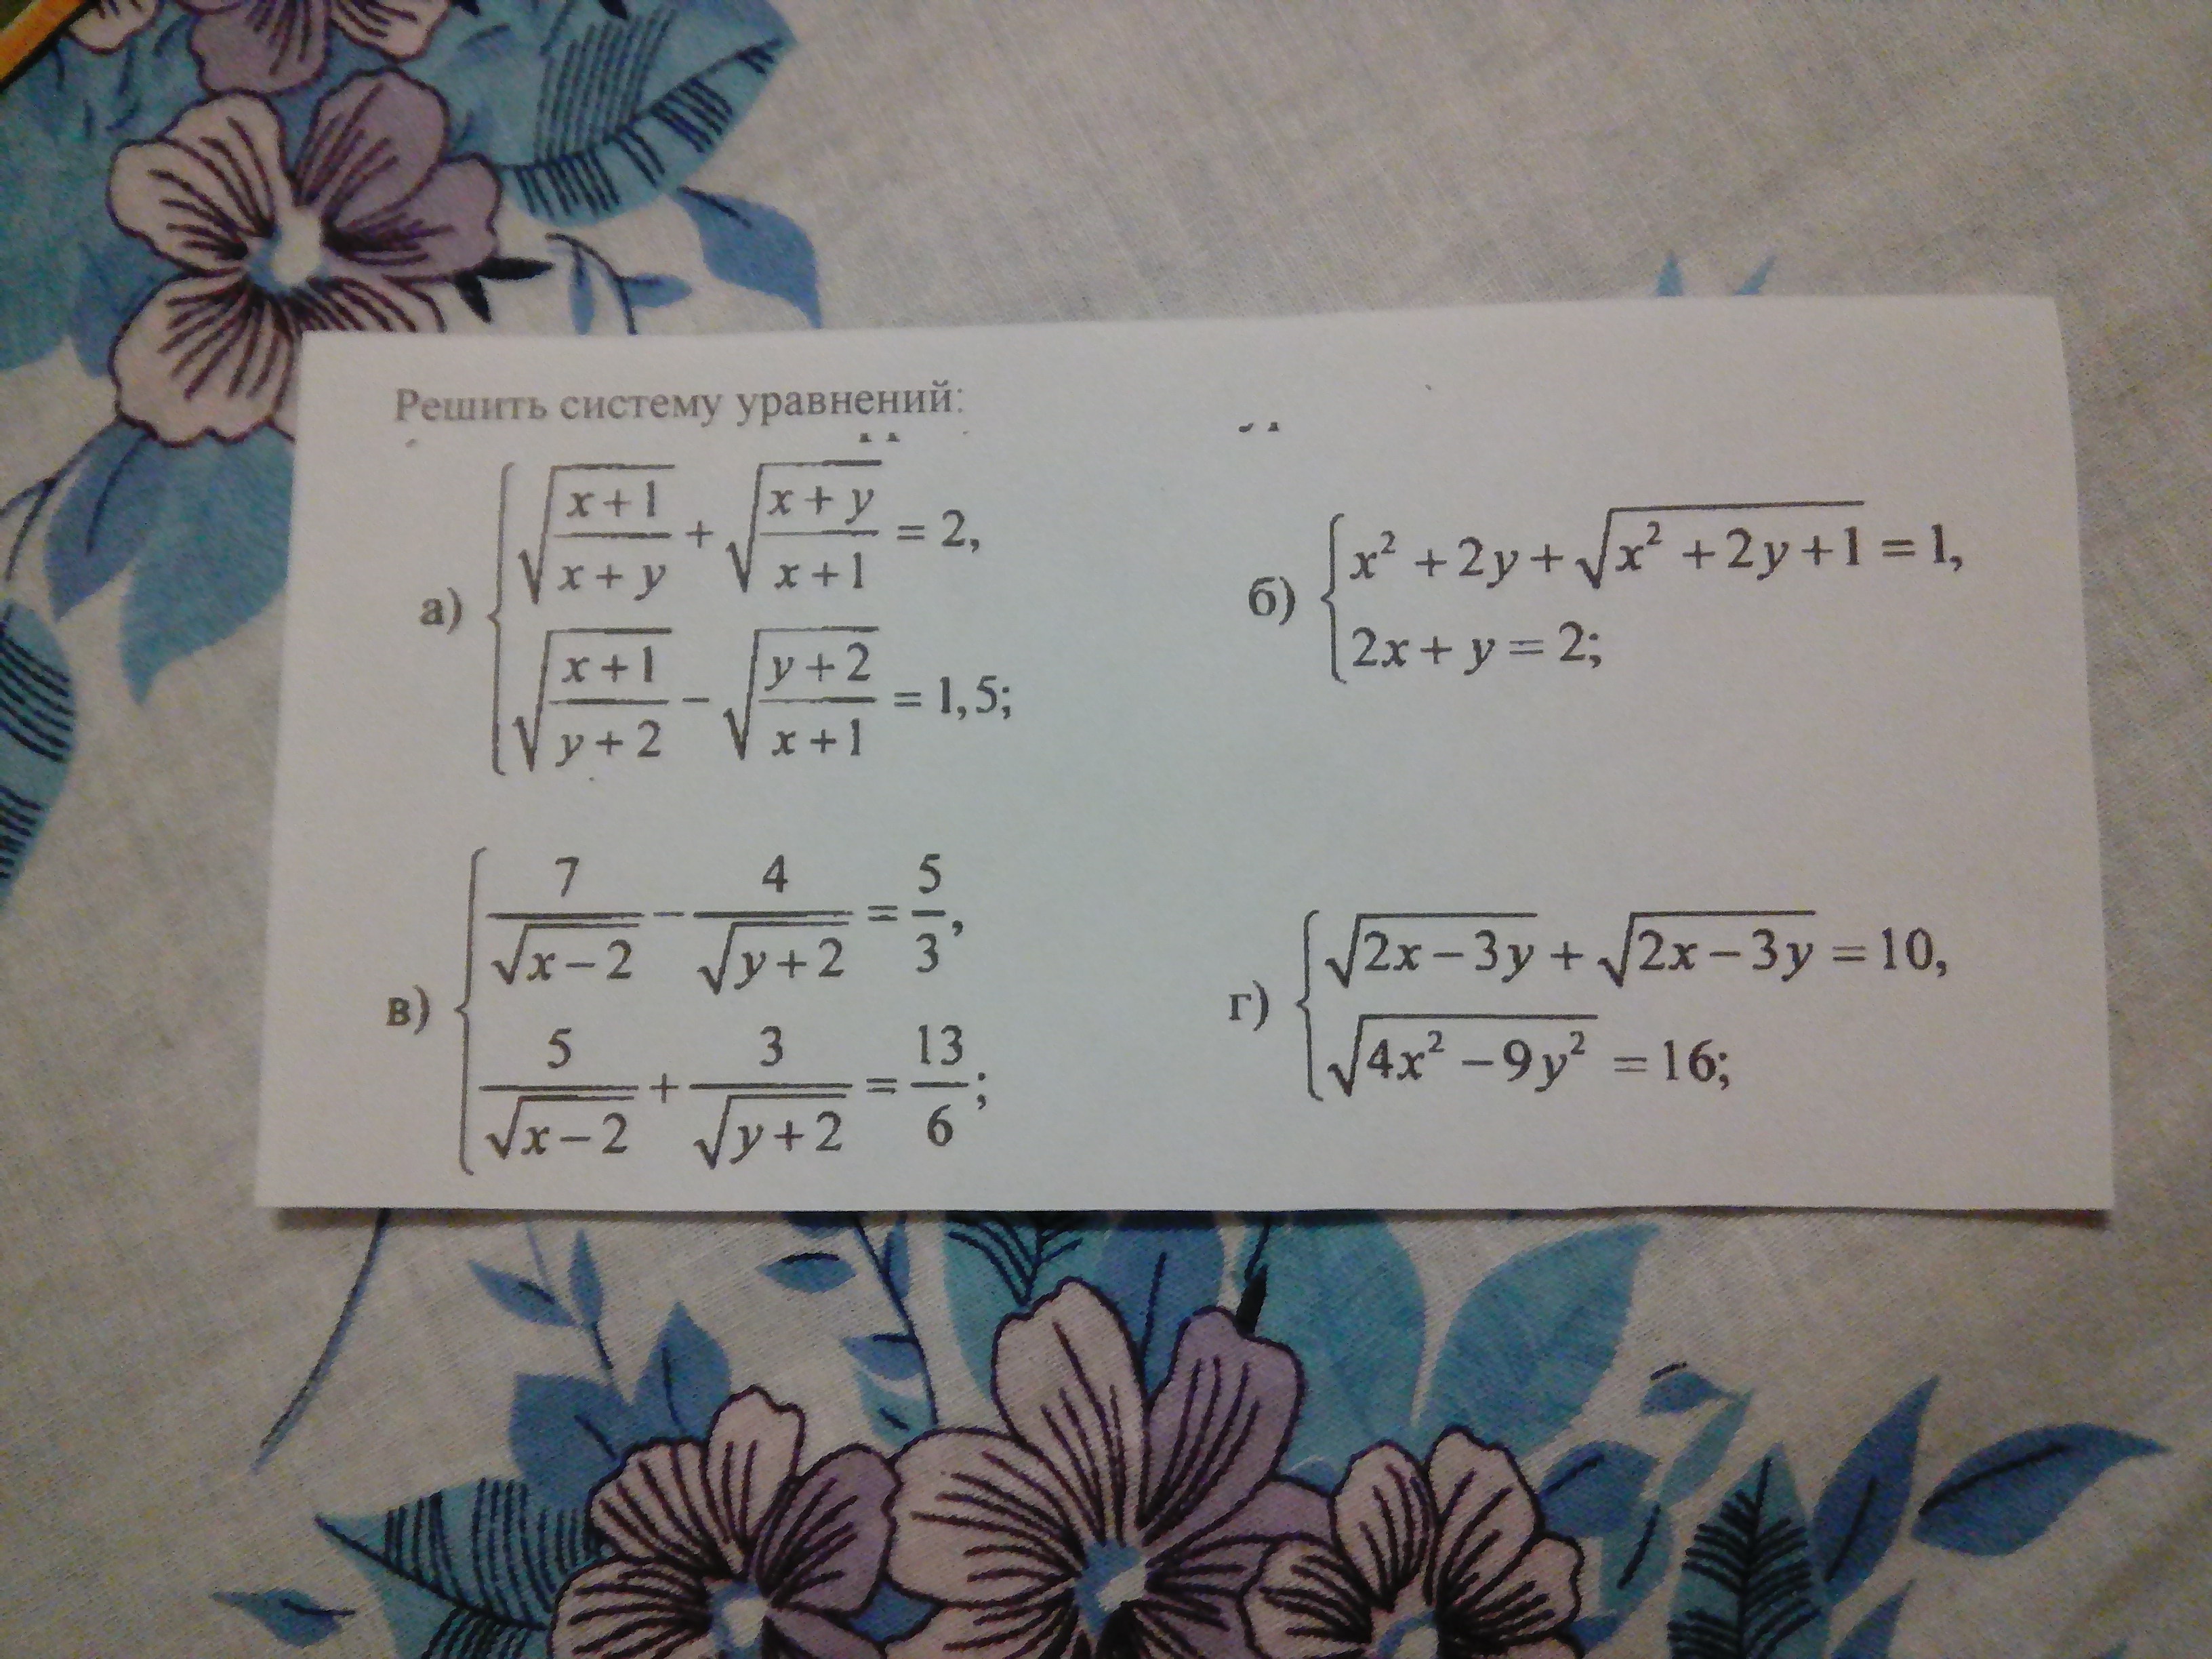 Решить систему уравнений:
а) { √((x+1)/(x+y)) + √((x+y)/(x+1)) = 2,
√((x+1)/(y+2)) − √((y+2)/(x+1)) = 1,5;
б) { x² + 2y + √(x² + 2y + 1) = 1,
2x + y = 2;
в) { 7/√(x−2) − 4/√(y+2) = 5/3,
5/√(x−2) + 3/√(y+2) = 13/6;
г) { √(2x−3y) + √(2x−3y) = 10,
√(4x² − 9y²) = 16;